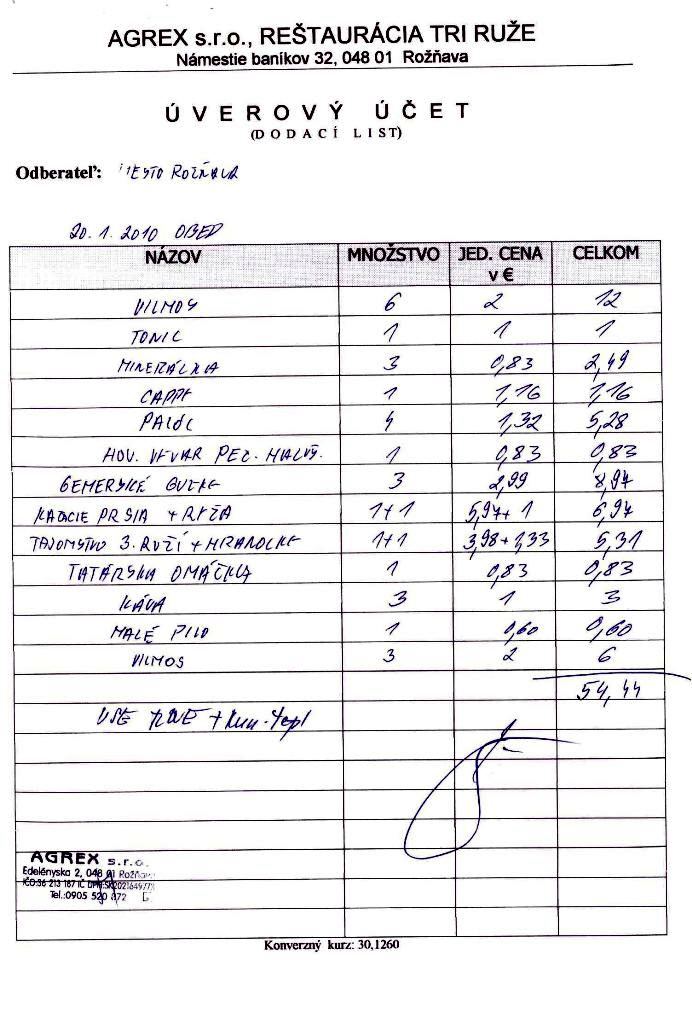 AGREX s.r.o., REŠTAURÁCIA TRI RUŽE
Námestie baníkov 32, 048 01 Rožňava
ÚVEROVÝ ÚČET
(DODACÍ LIST)
Odberateľ: MESTO ROŽŇAVA
20. 1. 2010 OBED
NÁZOV MNOŽSTVO JED. CENA v € CELKOM
VILMOS 6 2 12
TONIC 1 1 1
MINERÁLKA 3 0,83 2,49
CAPPY 1 1,16 1,16
PALÓC 4 1,32 5,28
HOV. VÝVAR PEČ. 1 0,83 0,83
GEMERSKÉ GUĽKY 3 2,99 8,97
KAČACIE PRSIA + RYŽA 1+1 5,97+1 6,97
TAJOMSTVO 3. RUŽÍ + HRANOLKY 1+1 3,98+1,33 5,31
TATÁRSKA OMÁČKA 1 0,83 0,83
KÁVA 3 1 3
MALÉ PIVO 1 0,60 0,60
VILMOS 3 2 6
54,44
AGREX s.r.o.
Edelényska 2, 048 01 Rožňava
IČO:36 213 187 IČ DPH:SK2021649771
Tel.:0905 520 872
Konverzný kurz: 30,1260